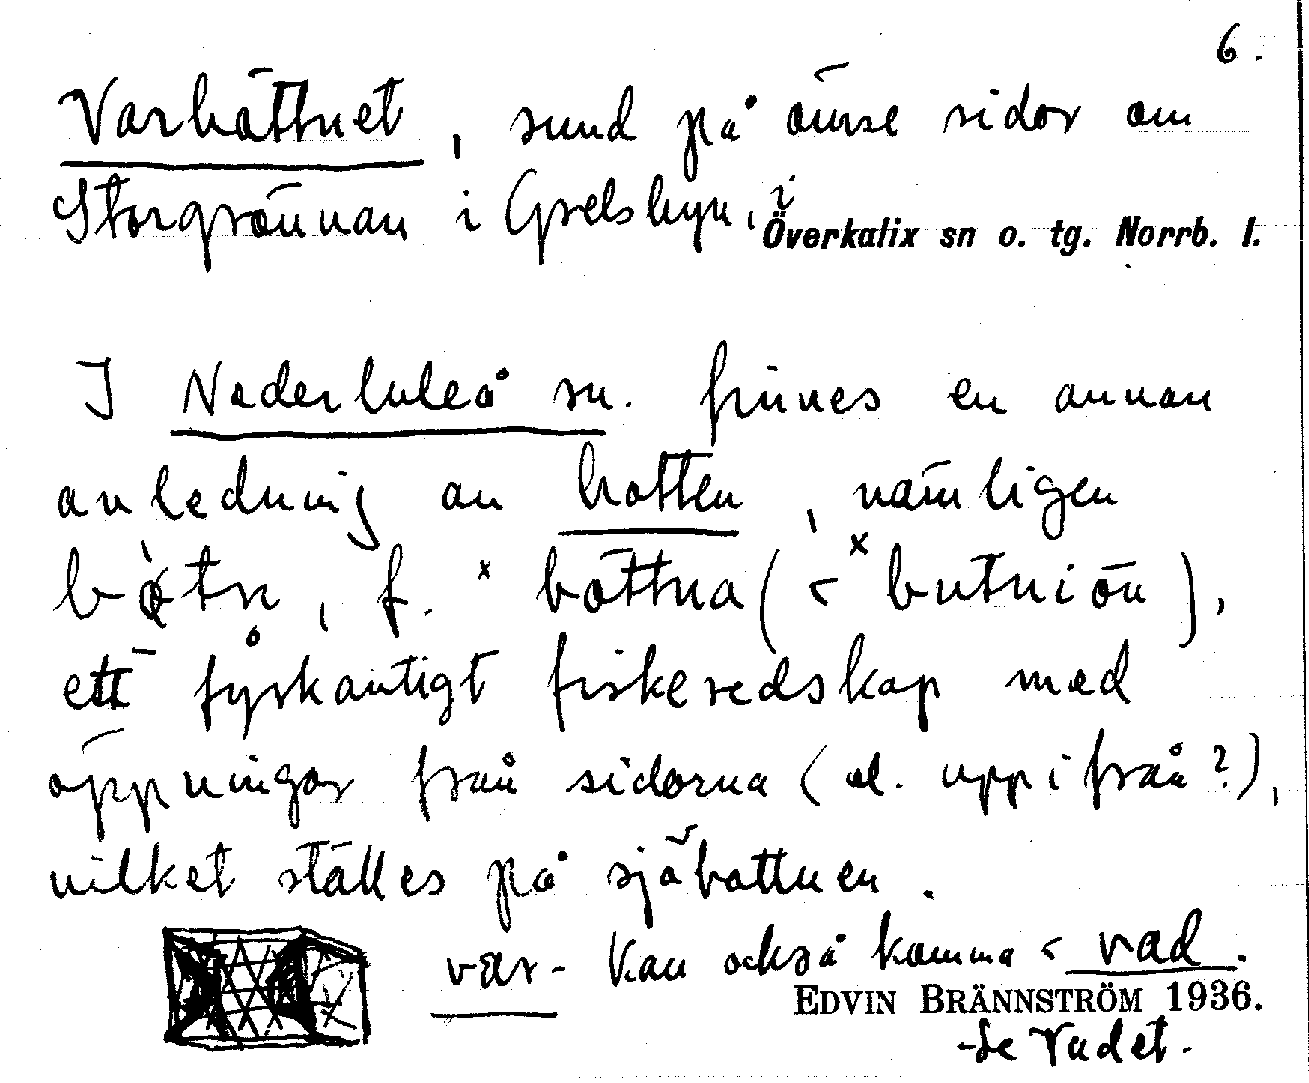 6.
Varbåttnet, sund på ömse sidor om
Storgrönnan i Grelsbyn, i
Överkalix sn o. tg. Norrb. l.
I Nederluleå sn. finnes en annan
anledning an botten, nämligen
f. ˣbottna (< ˣbutniōn),
ett fyrkantigt fiskeredskap med
öppningar från sidorna (el. uppifrån?),
vilket ställes på sjöbottnen.
var- kan också komma < vad.
EDVIN BRÄNNSTRÖM 1936.
- Se Vadet.